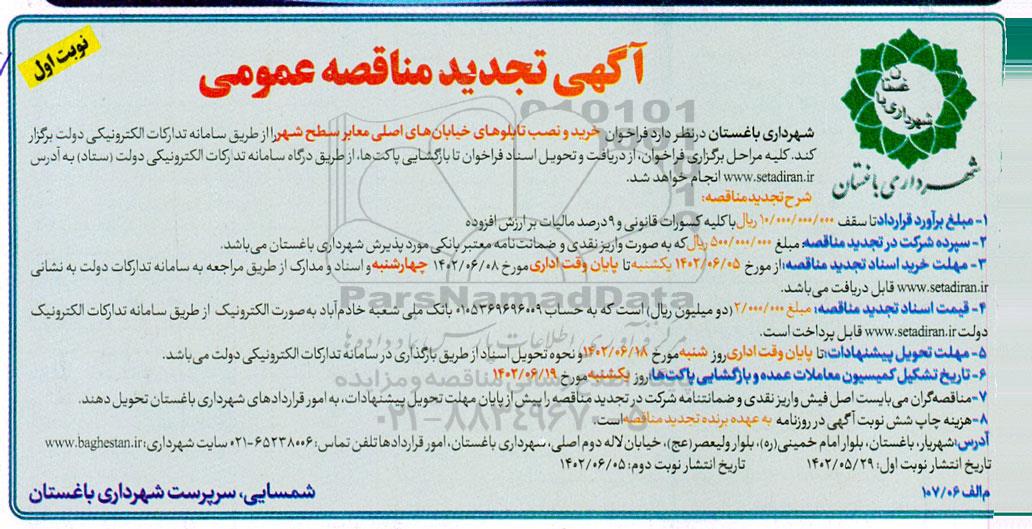 نوبت اول
آگهی تجدید مناقصه عمومی
شهرداری باغستان
شهرداری باغستان در نظر دارد فراخوان خرید و نصب تابلوهای خیابان‌های اصلی معابر سطح شهر را از طریق سامانه تدارکات الکترونیکی دولت برگزار
کند. کلیه مراحل برگزاری فراخوان، از دریافت و تحویل اسناد فراخوان تا بازگشایی پاکت‌ها، از طریق درگاه سامانه تدارکات الکترونیکی دولت (ستاد) به آدرس
www.setadiran.ir انجام خواهد شد.
شرح تجدید مناقصه:
۱- مبلغ برآورد قرارداد تا سقف ۱۰/۰۰۰/۰۰۰/۰۰۰ ریال با کلیه کسورات قانونی و ۹ درصد مالیات بر ارزش افزوده
۲- سپرده شرکت در تجدید مناقصه: مبلغ ۵۰۰/۰۰۰/۰۰۰ ریال که به صورت واریز نقدی و ضمانت نامه معتبر بانکی مورد پذیرش شهرداری باغستان می‌باشد.
۳- مهلت خرید اسناد تجدید مناقصه: از مورخ ۱۴۰۲/۰۶/۰۵ یکشنبه تا پایان وقت اداری مورخ ۱۴۰۲/۰۶/۰۸ چهارشنبه و اسناد و مدارک از طریق مراجعه به سامانه تدارکات دولت به نشانی
www.setadiran.ir قابل دریافت می‌باشد.
۴- قیمت اسناد تجدید مناقصه: مبلغ ۲/۰۰۰/۰۰۰ (دو میلیون ریال) است که به حساب ۰۱۰۵۳۶۹۶۹۶۰۰۹ بانک ملی شعبه خادم‌آباد به صورت الکترونیک از طریق سامانه تدارکات الکترونیک
دولت www.setadiran.ir قابل پرداخت است.
۵- مهلت تحویل پیشنهادات: تا پایان وقت اداری روز شنبه مورخ ۱۴۰۲/۰۶/۱۸ و نحوه تحویل اسناد از طریق بارگذاری در سامانه تدارکات الکترونیکی دولت می‌باشد.
۶- تاریخ تشکیل کمیسیون معاملات عمده و بازگشایی پاکت‌ها: روز یکشنبه مورخ ۱۴۰۲/۰۶/۱۹
۷- مناقصه‌گران می‌بایست اصل فیش واریز نقدی و ضمانتنامه شرکت در تجدید مناقصه را پیش از پایان مهلت تحویل پیشنهادات، به امور قراردادهای شهرداری باغستان تحویل دهند.
۸- هزینه چاپ شش نوبت آگهی در روزنامه به عهده برنده تجدید مناقصه است.
آدرس: شهریار، باغستان، بلوار امام خمینی(ره)، بلوار ولیعصر(عج)، خیابان لاله دوم اصلی، شهرداری باغستان، امور قراردادها تلفن تماس: ۶۵۲۳۸۰۰۶-۰۲۱ سایت شهرداری: www.baghestan.ir
تاریخ انتشار نوبت اول: ۱۴۰۲/۰۵/۲۹ تاریخ انتشار نوبت دوم: ۱۴۰۲/۰۶/۰۵
م الف ۱۰۷/۰۶
شمسایی، سرپرست شهرداری باغستان
ParsNamadData
۰۲۱-۸۸۳۴۹۶۷۰-۵